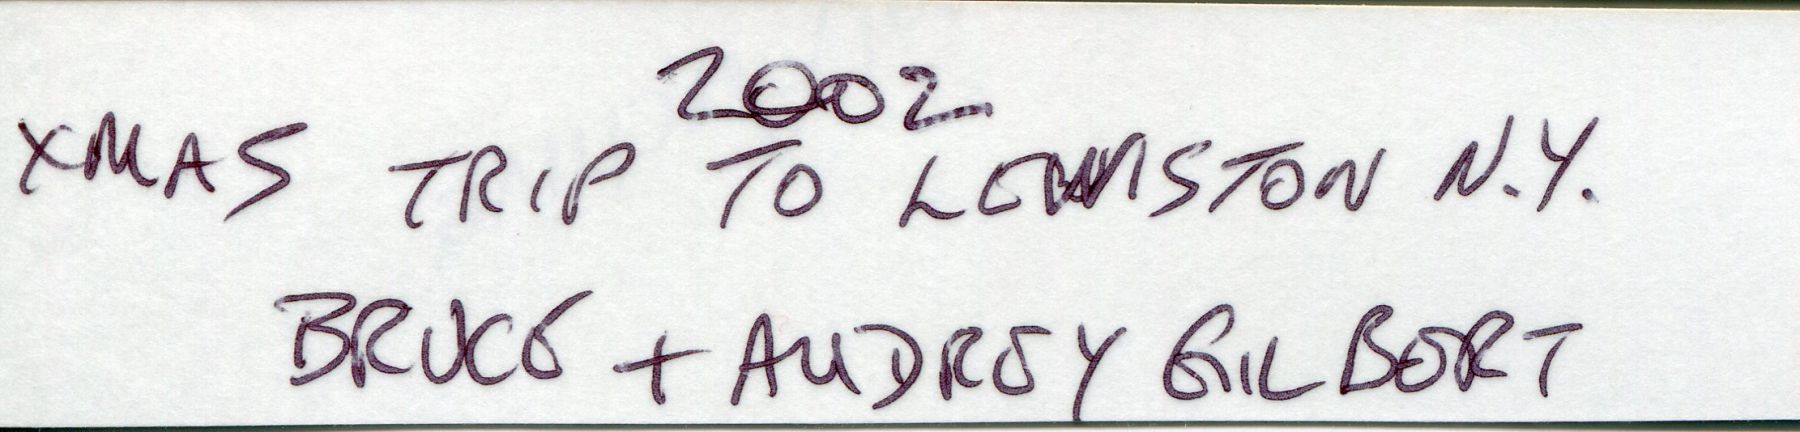 2002
XMAS TRIP TO LEWISTON N.Y.
BRUCE + AUDREY GILBERT